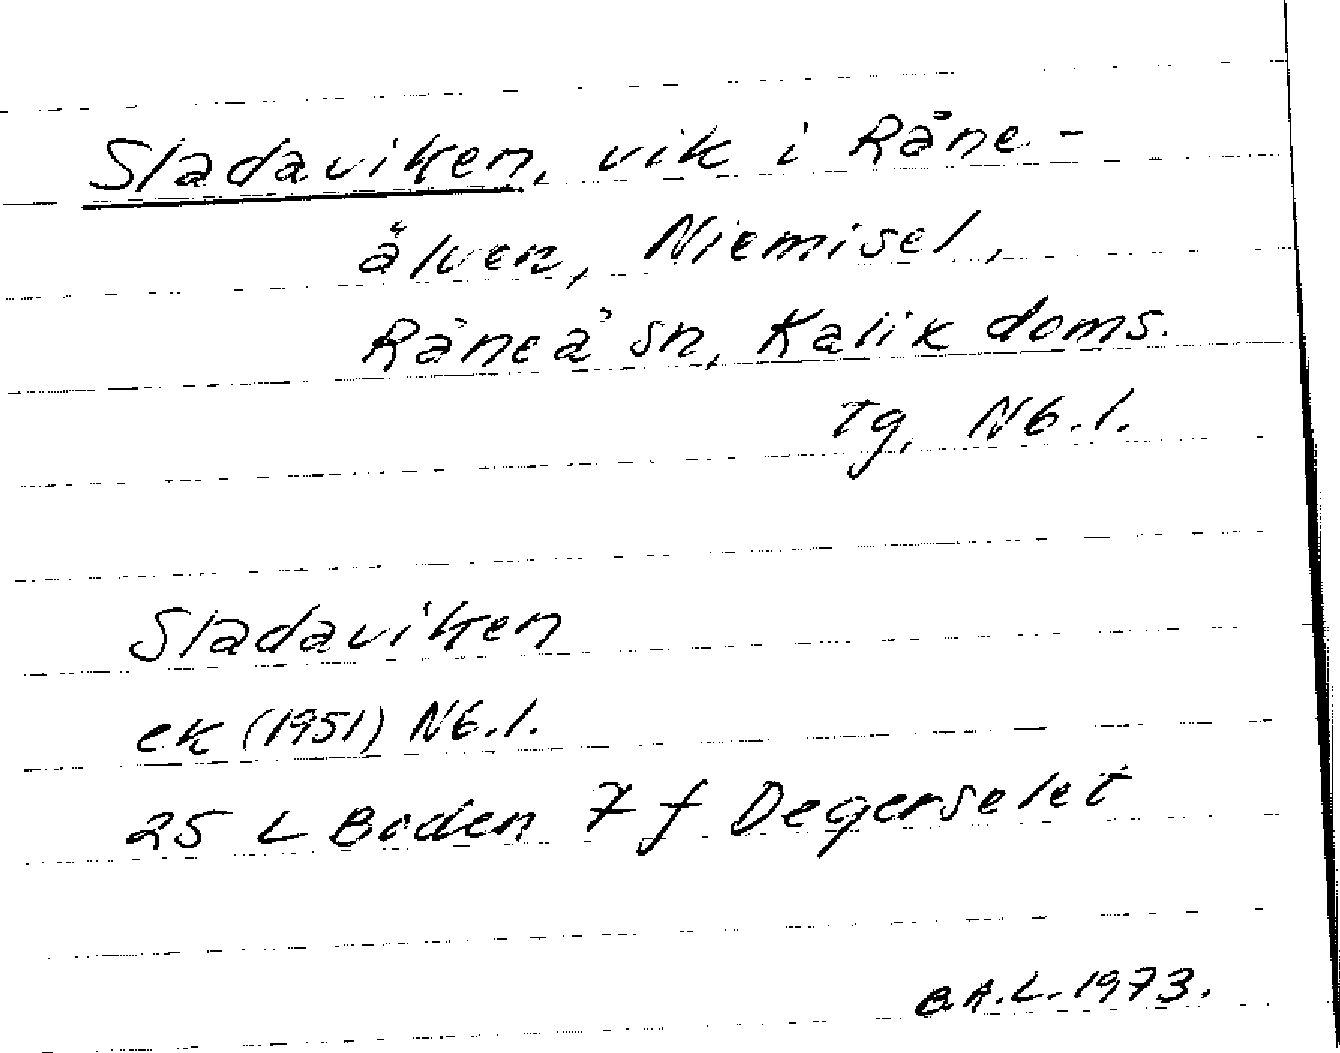 Sladaviken, vik i Råne-
älven, Niemisel,
Råneå sn, Kalix doms.
Tg, Nb. l.
Sladaviken
ek (1951) Nb. l.
25 L Boden 7 f Degerselet
B.A.L. 1973.